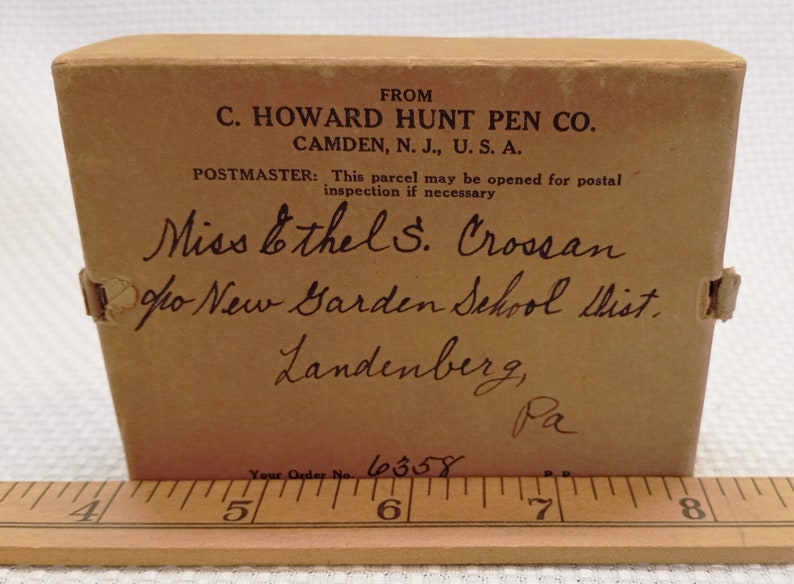 FROM
C. HOWARD HUNT PEN CO.
CAMDEN, N. J., U. S. A.
POSTMASTER: This parcel may be opened for postal
inspection if necessary
Miss Ethel S. Crossan
c/o New Garden School Dist.
Landenberg,
Pa
Your Order No. 6358 P. P.
4 5 6 7 8